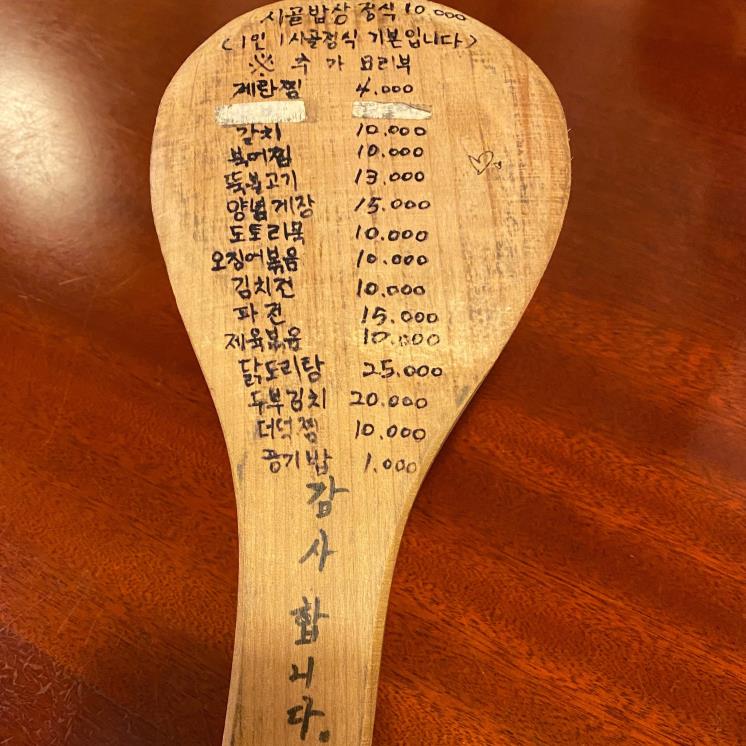 시골밥상 정식 10.000
(1인 1시골정식 기본입니다)
※ 추가 요리부
계란찜 4.000
갈치 10.000
북어찜 10.000
뚝불고기 13.000
양념게장 15.000
도토리묵 10.000
오징어볶음 10.000
김치전 10.000
파전 15.000
제육볶음 10.000
닭도리탕 25.000
두부김치 20.000
더덕찜 10.000
공기밥 1.000
감
사
합
니
다.